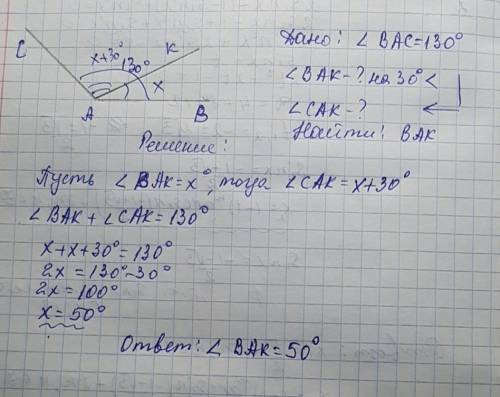 C
x+30° 130°
K
x
A
B
Дано: ∠ BAC=130°
∠BAK-? на 30° <
∠CAK-?
Найти: BAK
Решение:
Пусть ∠ BAK=x°, тога ∠CAK=x+30°
∠BAK+∠CAK=130°
x+x+30°=130°
2x=130°-30°
2x=100°
x=50°
Ответ: ∠ BAK=50°